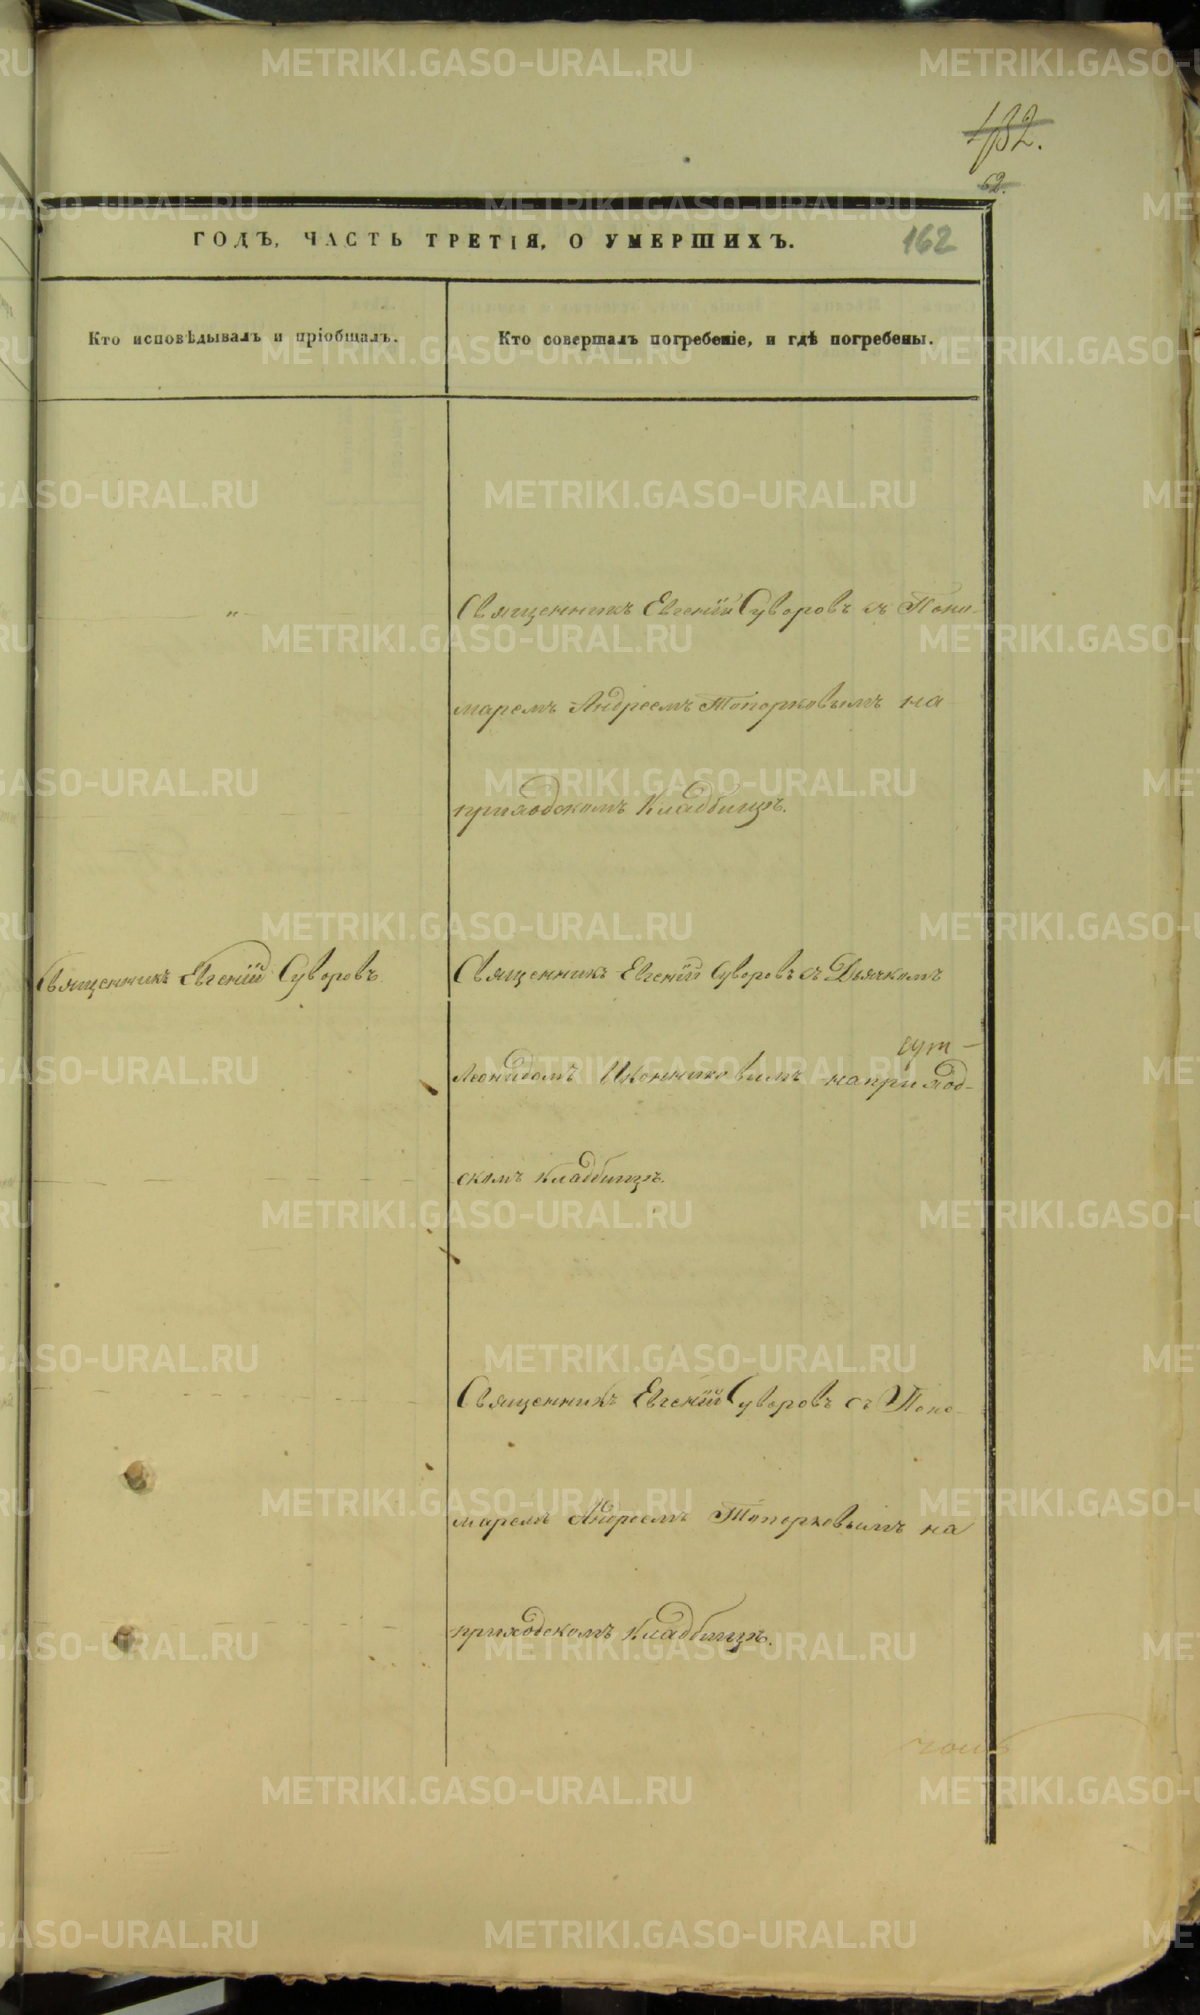 132.
62.
ГОДЪ, ЧАСТЬ ТРЕТІЯ, О УМЕРШИХЪ.
162
Кто исповѣдывалъ и пріобщалъ.
Кто совершалъ погребеніе, и гдѣ погребены.
"
Священникъ Евгеній Суворовъ съ Поно-
маремъ Андреемъ Топорковымъ на
приходскомъ Кладбищѣ.
Священникъ Евгеній Суворовъ
Священникъ Евгеній Суворовъ съ Дьячкомъ
Леонидомъ Иконниковымъ на приход-
скомъ кладбищѣ.
Священникъ Евгеній Суворовъ съ Поно-
маремъ Андреемъ Топорковымъ на
приходскомъ Кладбищѣ.
METRIKI.GASO-URAL.RU